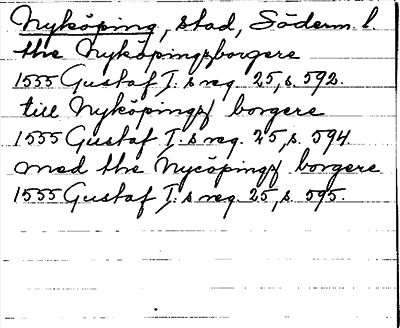 Nyköping, stad, Söderm. l.
the Nyköpingsborgere
1555 Gustaf I:s reg. 25, s. 592.
till Nyköpings borgere
1555 Gustaf I:s reg. 25, s. 594
med the Nycöpings borgere
1555 Gustaf I:s reg. 25, s. 595.